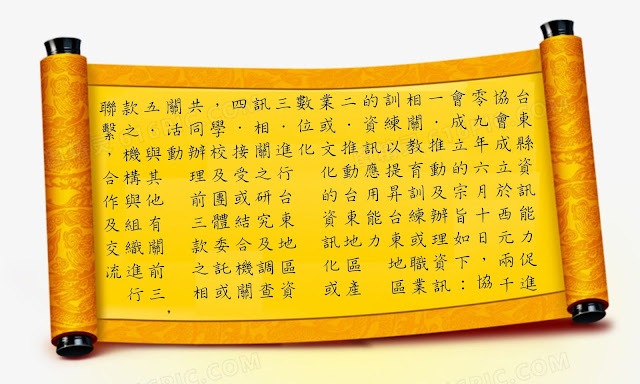 台東縣資訊能力促進
協會成立於西元兩千
零九年六月十日，協
會成立的宗旨如下：
一．推動及辦理資訊
相關教育訓練或職業
訓練以提昇台東地區
的資訊應用能力
二．推動台東地區產
業或文化的資訊化或
數位化
三．進行台東地區資
訊相關之研究及調查
四．接受或結合機關
，學校及團體委託或
共同辦理前三款之相
關活動
五．與其他有關前三
款之機構與組織進行
聯繫，合作及交流